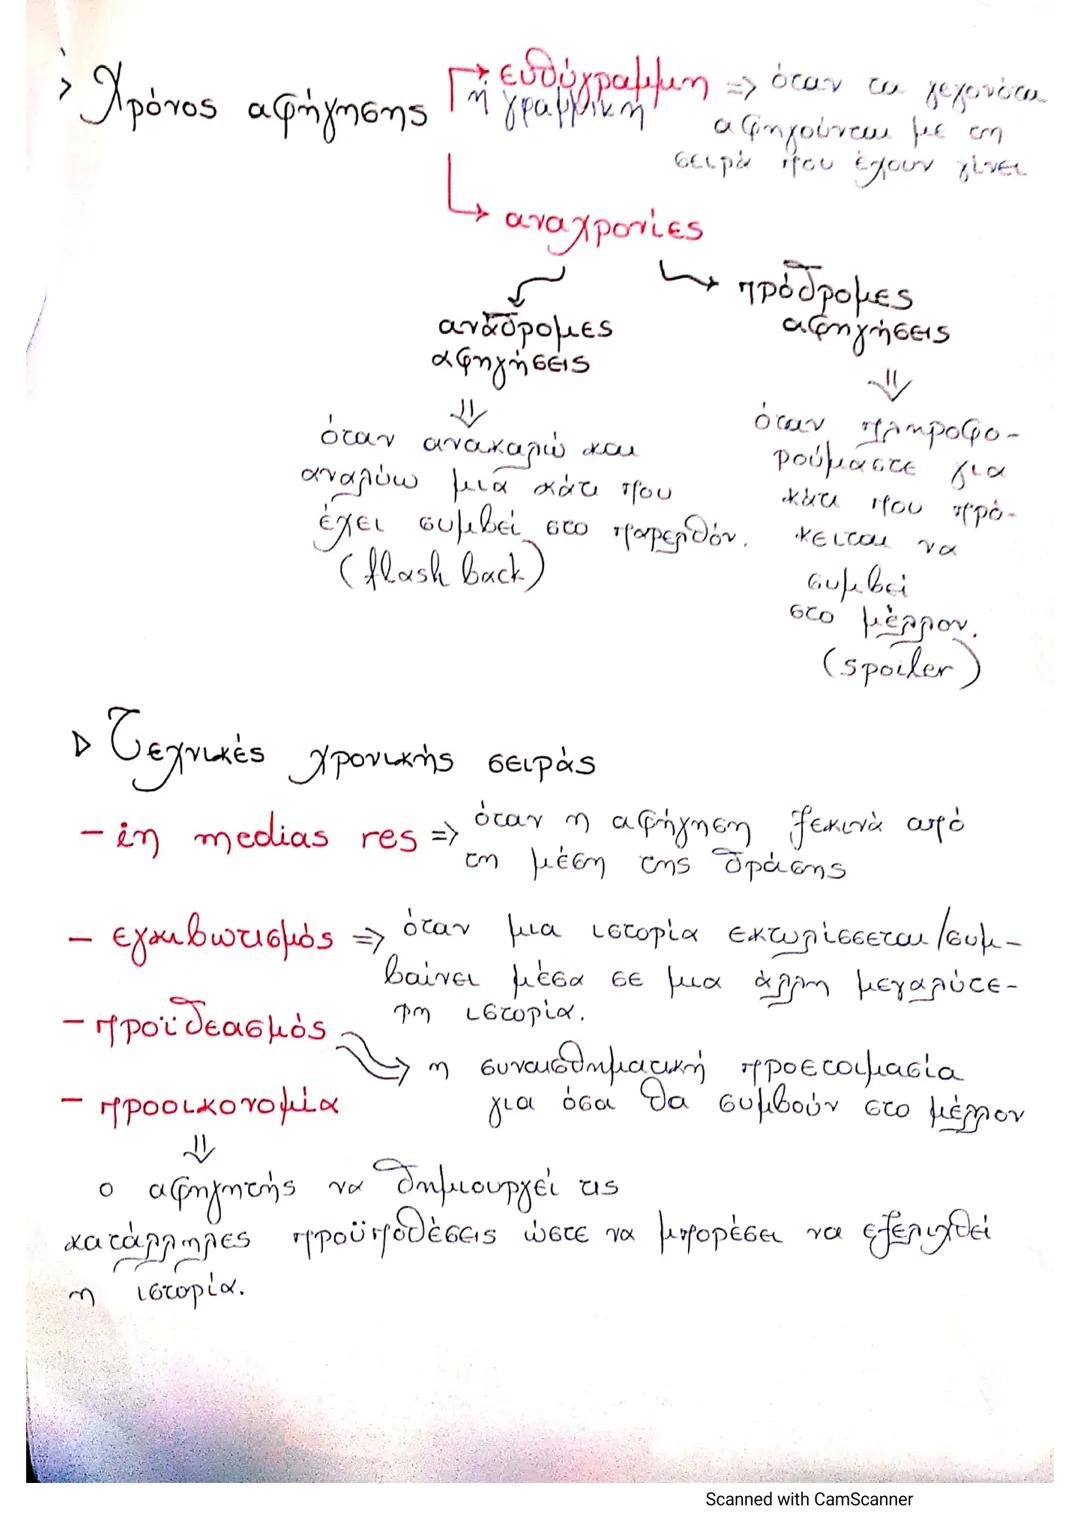 > Χρόνος αφήγησης
→ ευθύγραμμη => όταν τα γεγονότα
ή γραμμική αφηγούνται με τη
σειρά που έχουν γίνει
→ αναχρονίες
ανάδρομες
αφηγήσεις
⇓
όταν ανακαλώ και
αναλύω μια κάτι που
έχει συμβεί στο παρελθόν.
(flash back)
πρόδρομες
αφηγήσεις
⇓
όταν πληροφο-
ρούμαστε για
κάτι που πρό-
κειται να
συμβεί
στο μέλλον.
(spoiler)
▷ Τεχνικές χρονικής σειράς
- in medias res => όταν η αφήγηση ξεκινά από
τη μέση της δράσης
- εγκιβωτισμός => όταν μια ιστορία εκτυλίσσεται/συμ-
βαίνει μέσα σε μια άλλη μεγαλύτε-
ρη ιστορία.
- προϊδεασμός
=> η συναισθηματική προετοιμασία
για όσα θα συμβούν στο μέλλον
- προοικονομία
⇓
ο αφηγητής να δημιουργεί τις
κατάλληλες προϋποθέσεις ώστε να μπορέσει να εξελιχθεί
η ιστορία.
Scanned with CamScanner